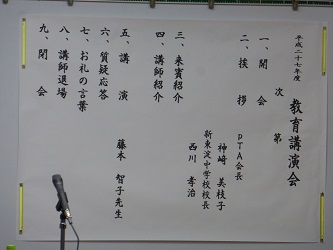 平成二十七年度
教育講演会
次第
一、開会
二、挨拶
PTA会長
神﨑 美枝子
新東淀中学校校長
西川 孝治
三、来賓紹介
四、講師紹介
五、講演
藤本 智子先生
六、質疑応答
七、お礼の言葉
八、講師退場
九、閉会